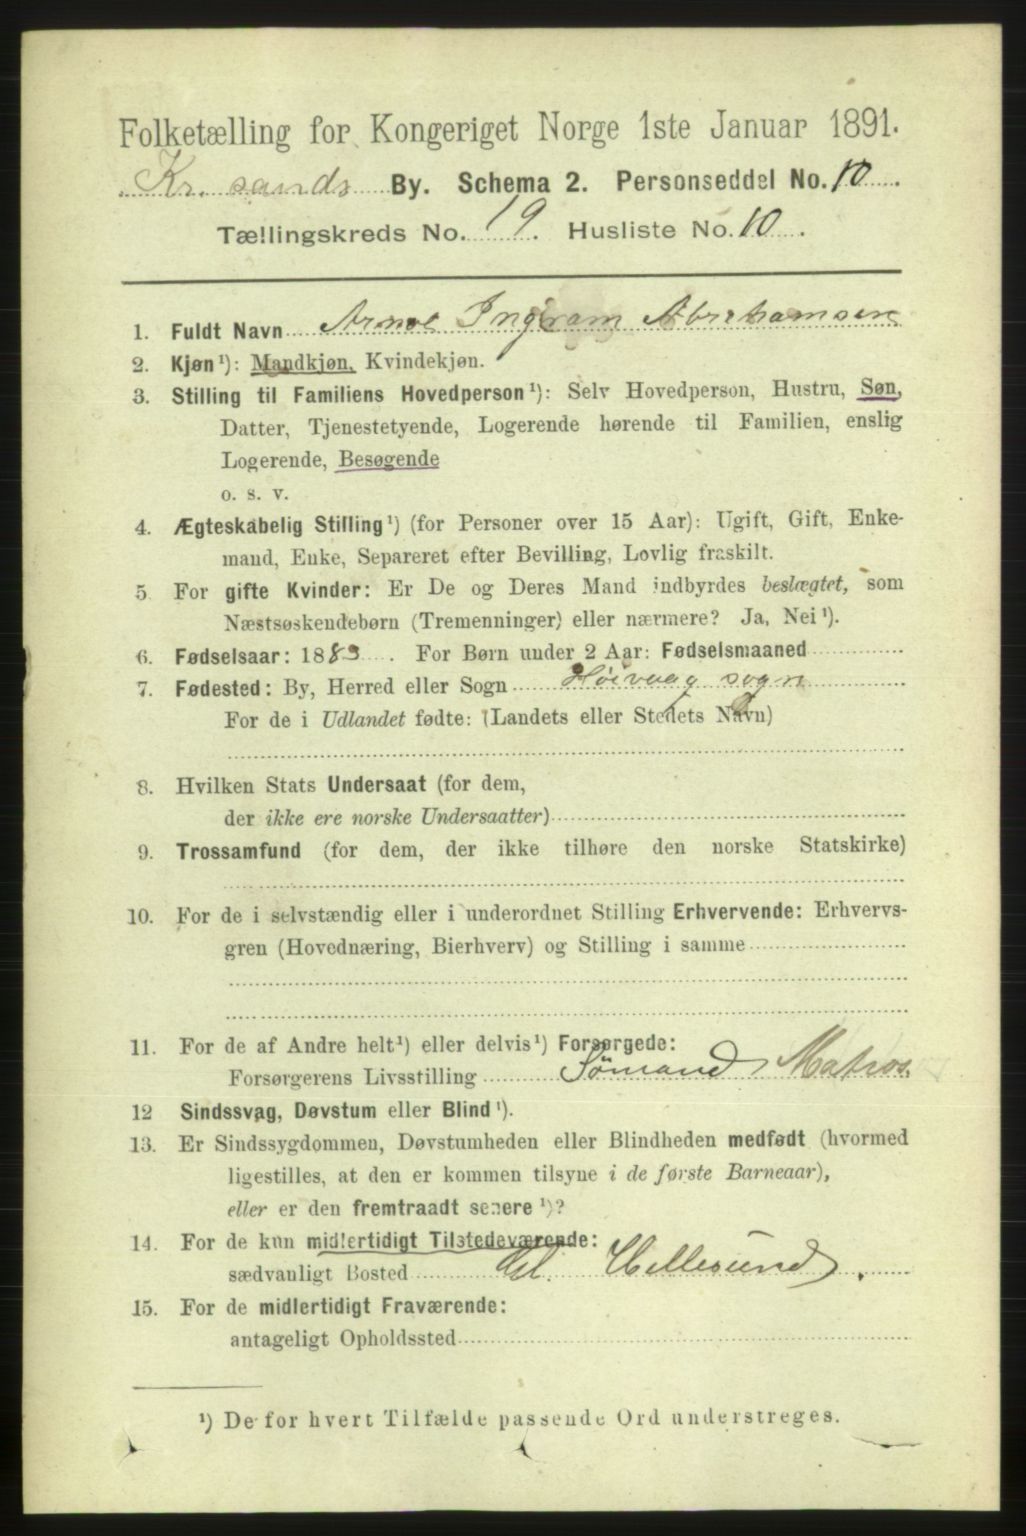 Folketælling for Kongeriget Norge 1ste Januar 1891.
Kr. sands By. Schema 2. Personseddel No. 10
Tællingskreds No. 19. Husliste No. 10.
1. Fuldt Navn Arnol Ingvram Abrahamsen
2. Kjøn¹): Mandkjøn, Kvindekjøn.
3. Stilling til Familiens Hovedperson¹): Selv Hovedperson, Hustru, Søn,
Datter, Tjenestetyende, Logerende hørende til Familien, enslig
Logerende, Besøgende
o. s. v.
4. Ægteskabelig Stilling¹) (for Personer over 15 Aar): Ugift, Gift, Enke-
mand, Enke, Separeret efter Bevilling, Lovlig fraskilt.
5. For gifte Kvinder: Er De og Deres Mand indbyrdes beslægtet, som
Næstsøskendebørn (Tremenninger) eller nærmere? Ja, Nei¹).
6. Fødselsaar: 1883. For Børn under 2 Aar: Fødselsmaaned
7. Fødested: By, Herred eller Sogn Høivaag sogn
For de i Udlandet fødte: (Landets eller Stedets Navn)
8. Hvilken Stats Undersaat (for dem,
der ikke ere norske Undersaatter)
9. Trossamfund (for dem, der ikke tilhøre den norske Statskirke)
10. For de i selvstændig eller i underordnet Stilling Erhvervende: Erhvervs-
gren (Hovednæring, Bierhverv) og Stilling i samme
11. For de af Andre helt¹) eller delvis¹) Forsørgede:
Forsørgerens Livsstilling Sømand, Matros.
12 Sindssvag, Døvstum eller Blind¹).
13. Er Sindssygdommen, Døvstumheden eller Blindheden medfødt (hvormed
ligestilles, at den er kommen tilsyne i de første Barneaar),
eller er den fremtraadt senere¹)?
14. For de kun midlertidigt Tilstedeværende:
sædvanligt Bosted Gl. Hellesund.
15. For de midlertidigt Fraværende:
antageligt Opholdssted
¹) De for hvert Tilfælde passende Ord understreges.